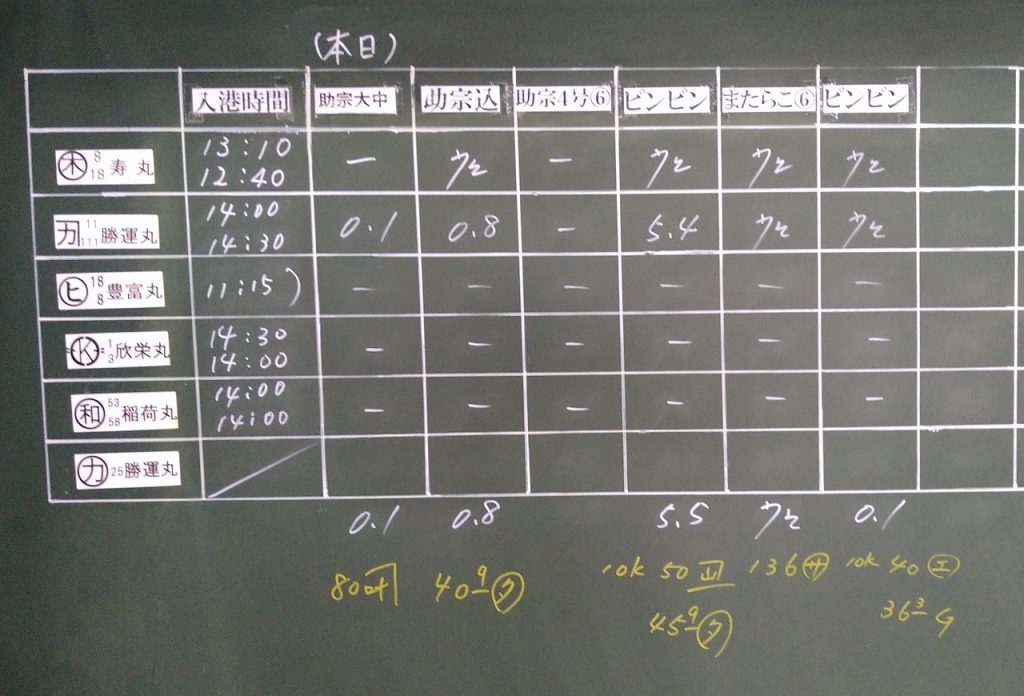 (本日)
入港時間 助宗大中 助宗込 助宗4号⑥ ピンピン またらこ⑥ ピンピン
木 8 18 寿丸 13:10 12:40 ー ウヒ ー ウヒ ウヒ ウヒ
カ 11 111 勝運丸 14:00 14:30 0.1 0.8 ー 5.4 ウヒ ウヒ
ヒ 18 8 豊富丸 11:15) ー ー ー ー ー ー
K 1 3 欣栄丸 14:30 14:00 ー ー ー ー ー ー
和 53 58 稲荷丸 14:00 14:00 ー ー ー ー ー ー
カ 25 勝運丸
0.1 0.8 5.5 ウヒ 0.1
80 40 9 ク 10K 50 136 サ 10K 40 エ
45 9 ク 36 3